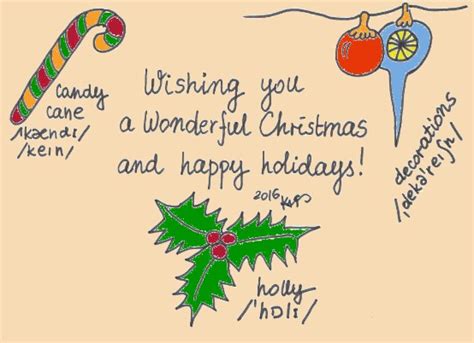 candy
cane
/ˈkændɪ/
/keɪn/
Wishing you
a Wonderful Christmas
and happy holidays!
2016
decorations
/ˌdekəˈreɪʃn/
holly
/ˈhɒlɪ/